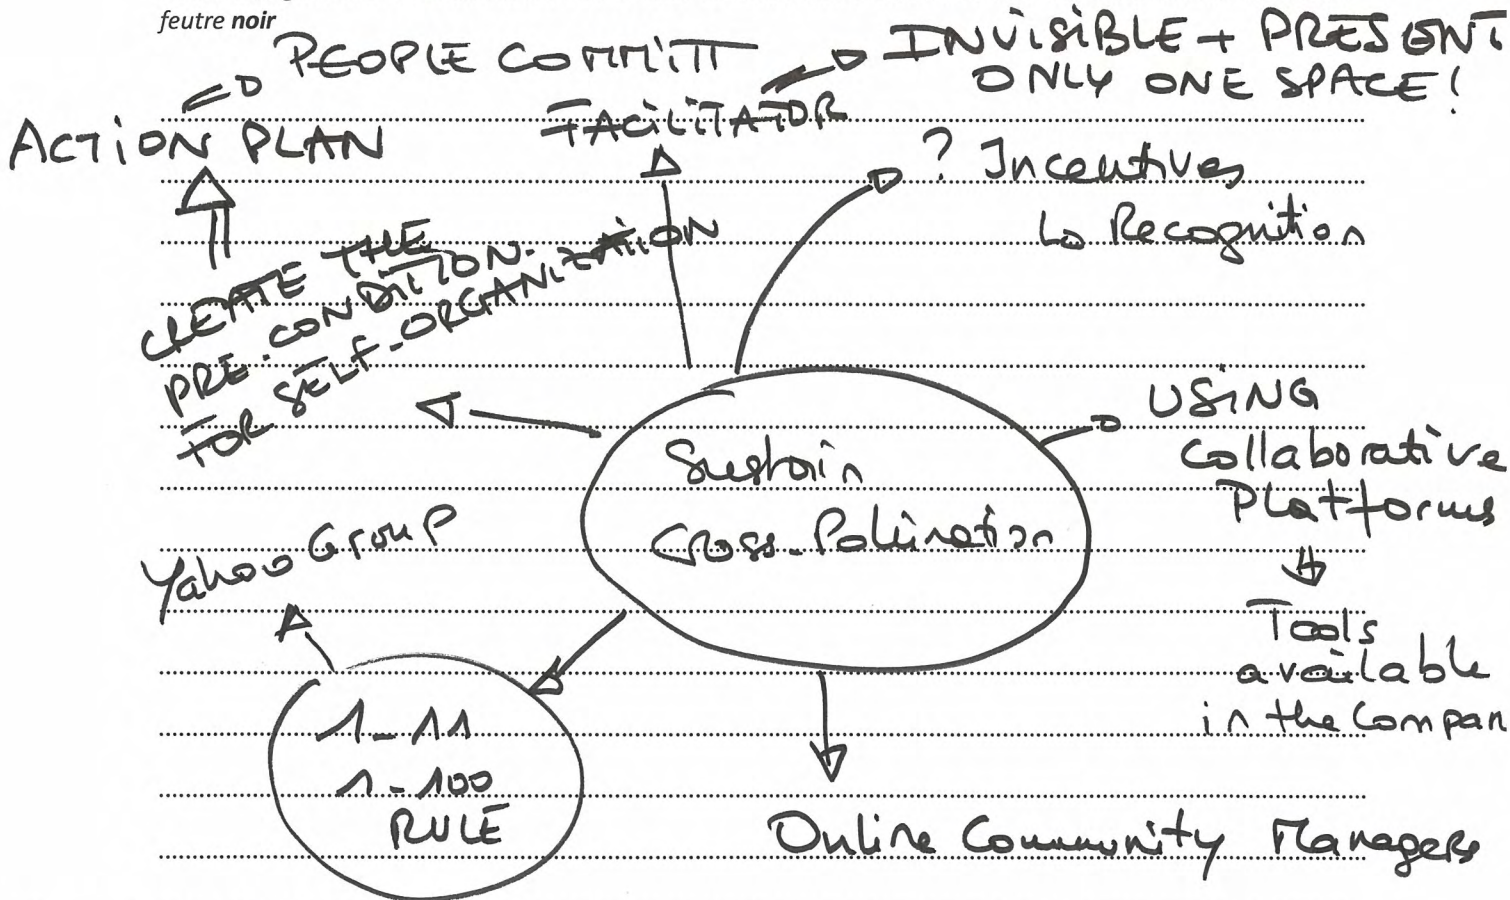 feutre noir
PEOPLE COMMITT
INVISIBLE + PRESENT
ONLY ONE SPACE!
ACTION PLAN
FACILITATOR
? Incentives
Recognition
CREATE THE
PRE-CONDITION.
FOR SELF-ORGANIZATION
USING
Collaborative
Platforms
Sustain
Cross-Pollination
Yahoo Group
Tools
available
in the Compan
1-11
1-100
RULE
Online Community Managers